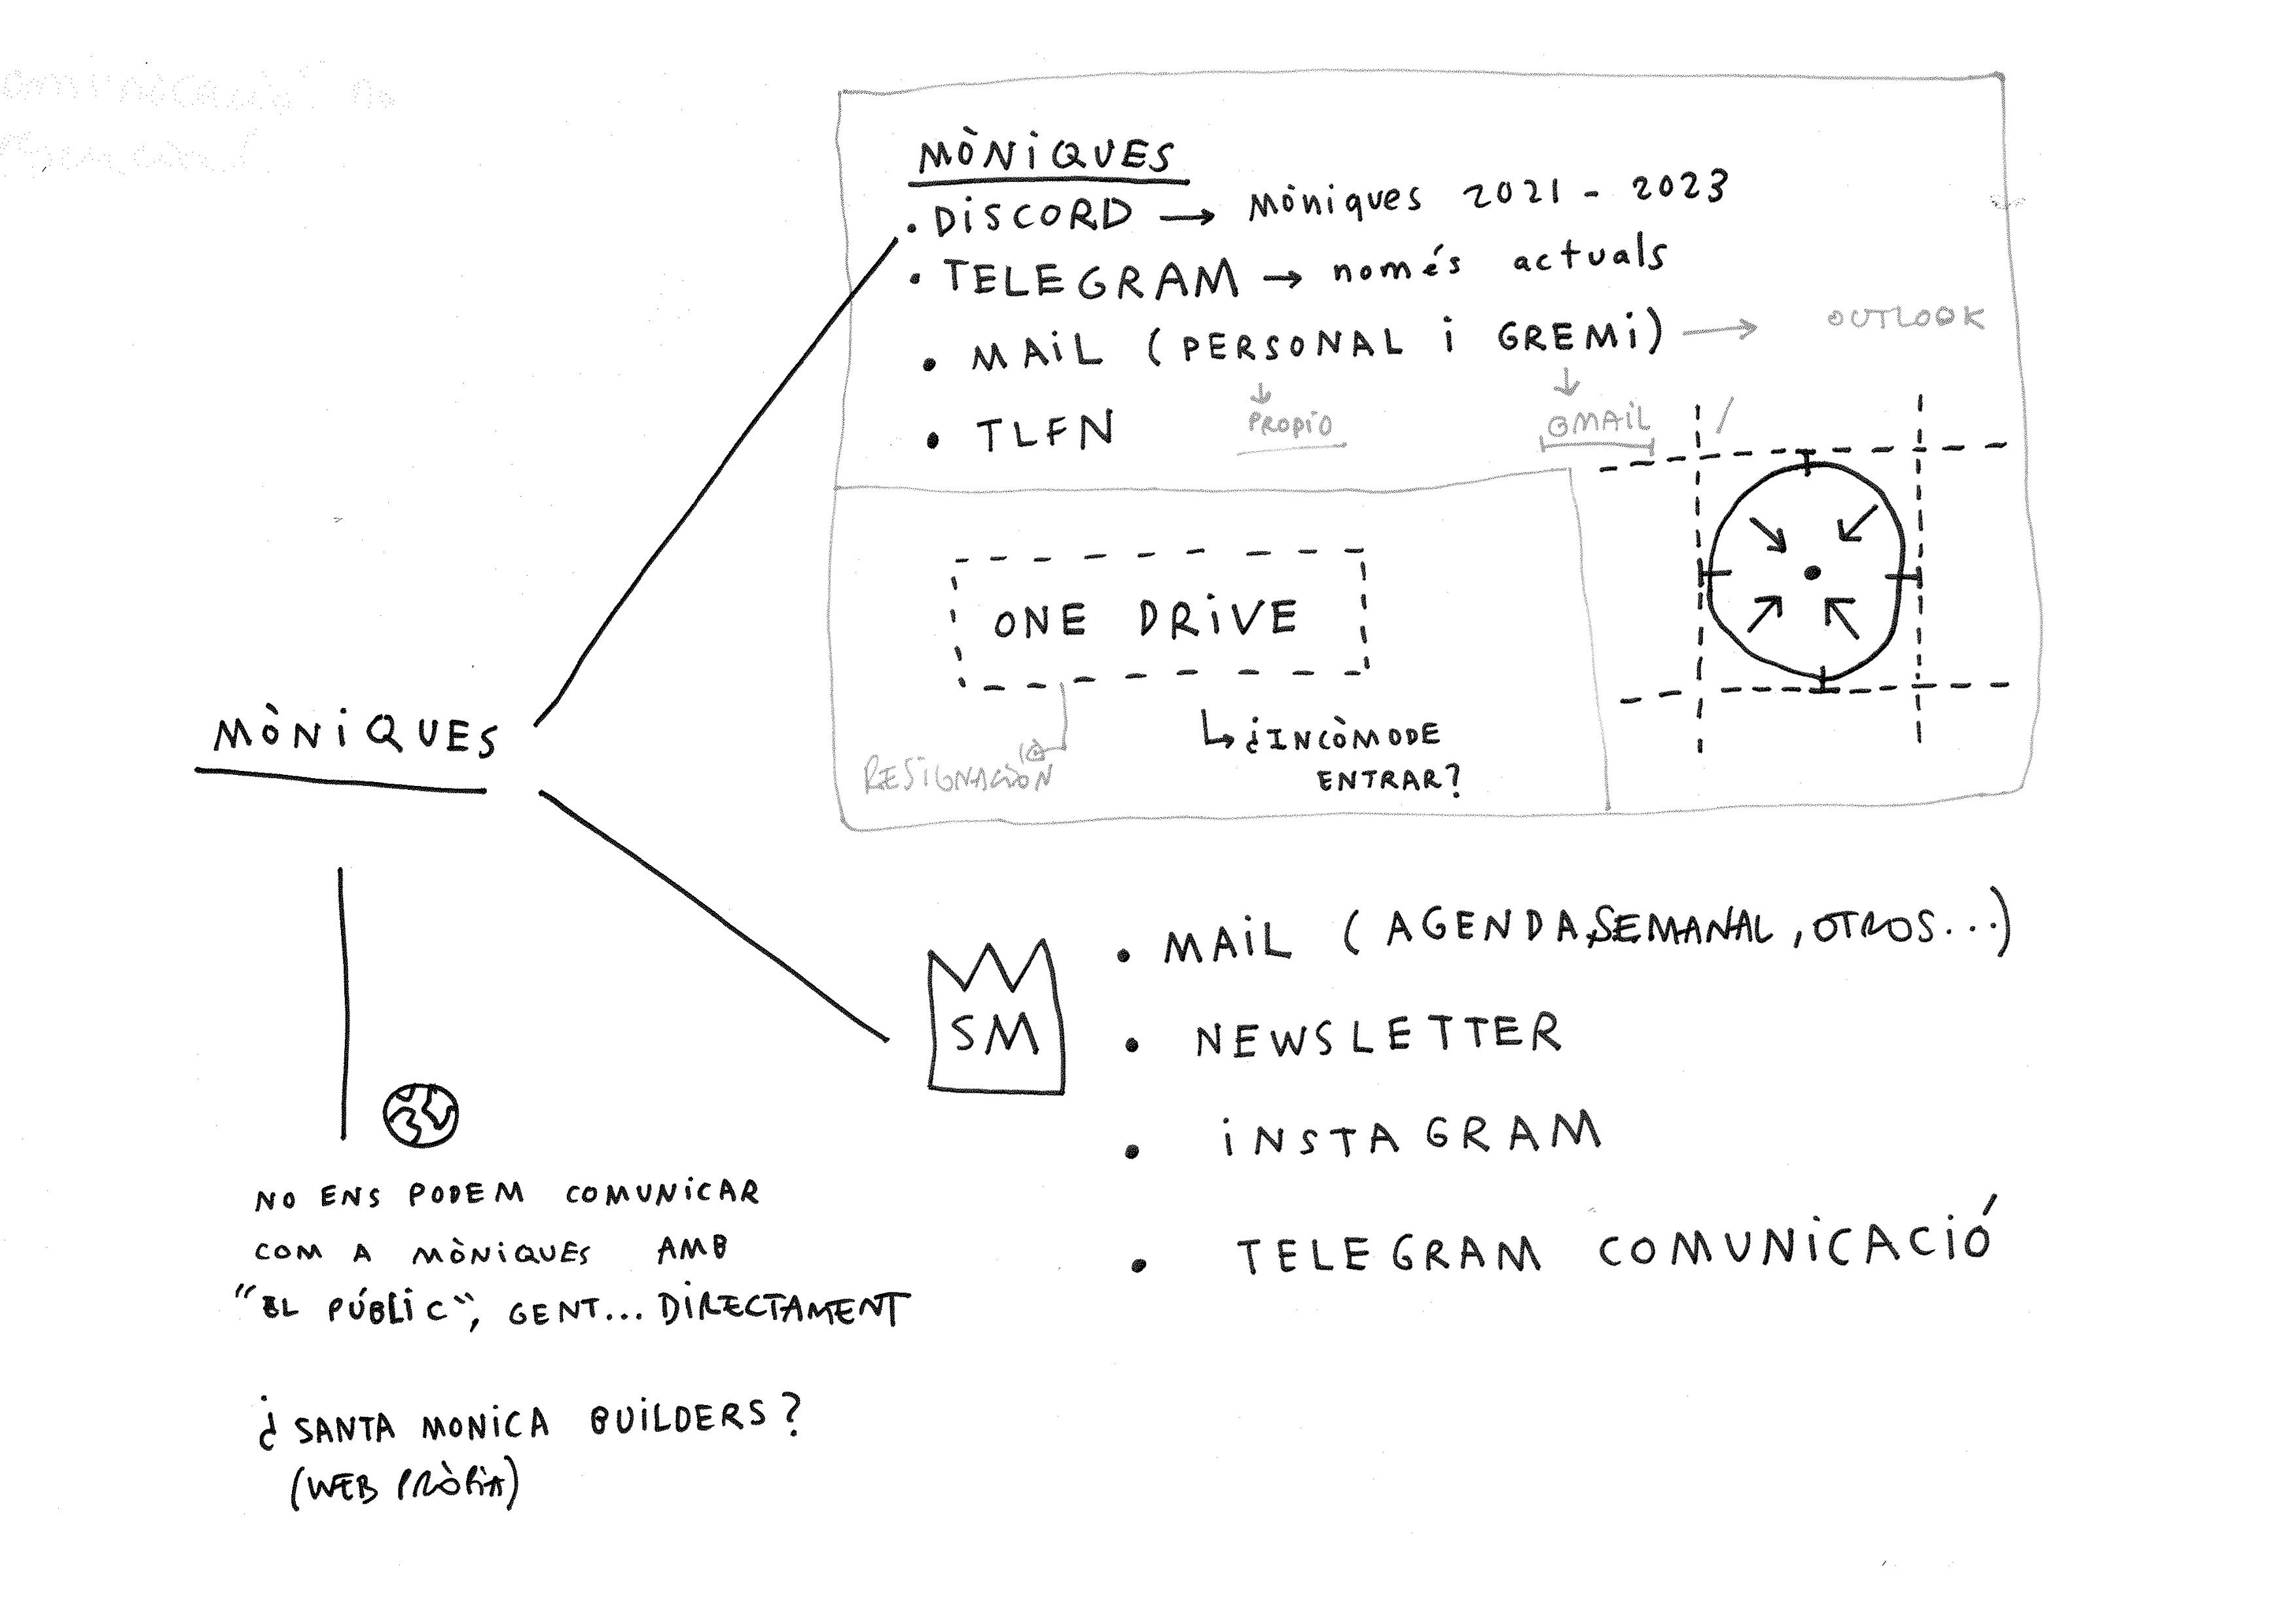 MÒNiQUES
MÒNiQUES
• DiSCORD → Mòniques 2021 - 2023
• TELEGRAM → només actuals
• MAiL (PERSONAL i GREMi) → OUTLOOK
PROPiO
@MAiL /
• TLFN
ONE DRiVE
RESiGNACiÒN
¿INCÒMODE
ENTRAR?
SM
• MAiL (AGENDA, SEMANAL, OTROS...)
• NEWSLETTER
• iNSTAGRAM
• TELEGRAM COMUNiCACiÓ
NO ENS PODEM COMUNiCAR
COM A MÒNiQUES AMB
"EL PÚBLiC", GENT... DiRECTAMENT
¿SANTA MONiCA BUiLDERS?
(WEB PRÒPiA)